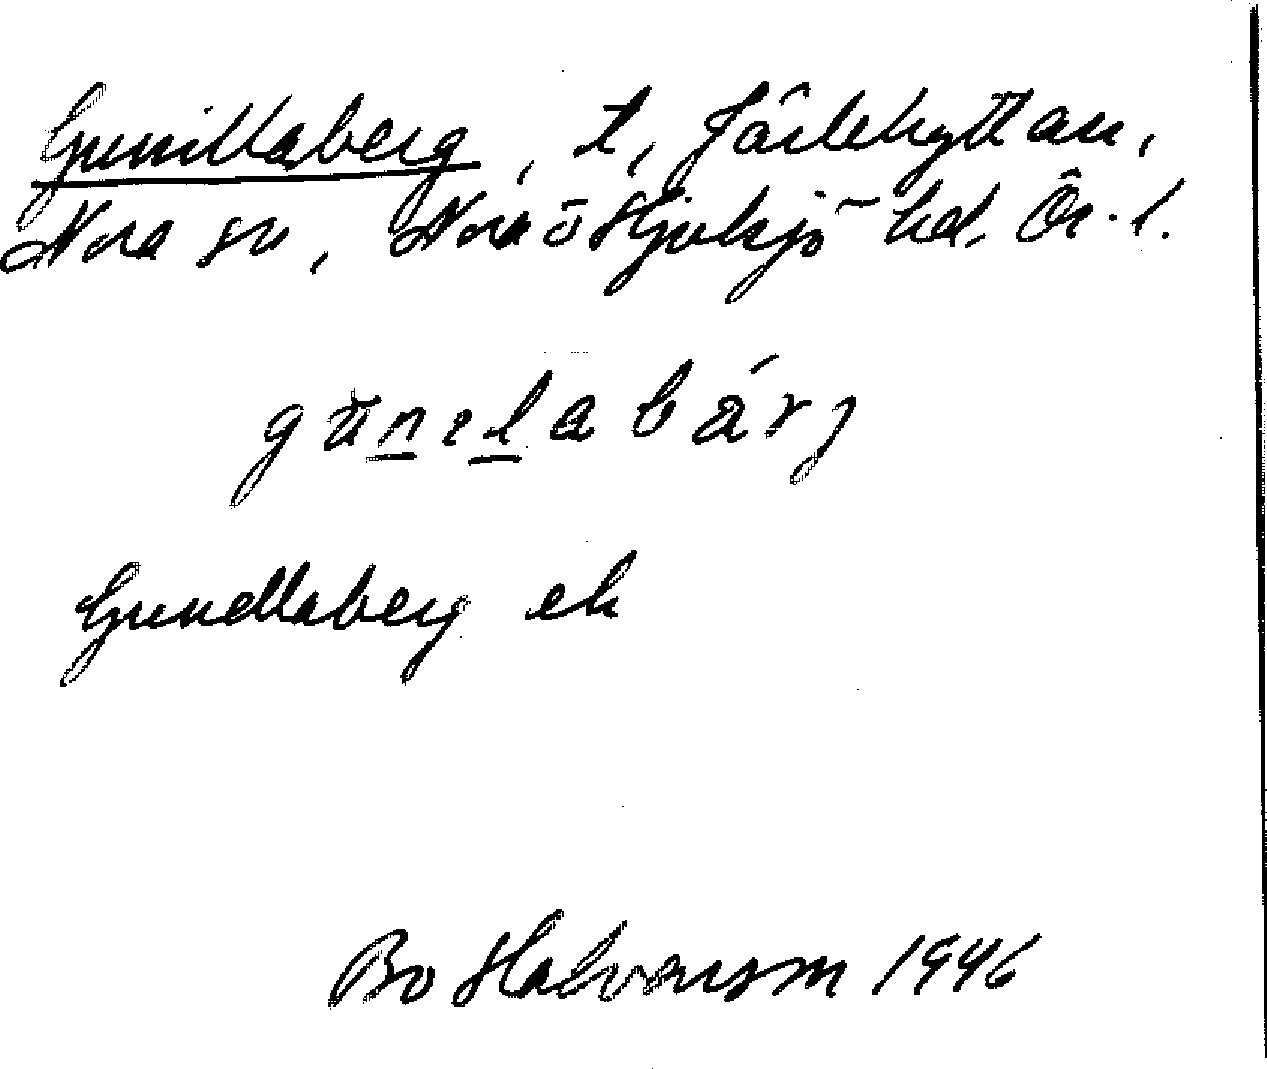 Gunillaberg, t, Järlehyttan,
Nora sn, Nora o Hjulsjö hd. Ör. l.
gunɩlabärj
Gunellaberg ek
Bo Halvarson 1946